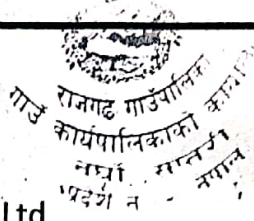 राजगढ गाउँपालिका
गाउँ कार्यपालिकाको कार्यालय
सप्तरी
नेपाल
Ltd